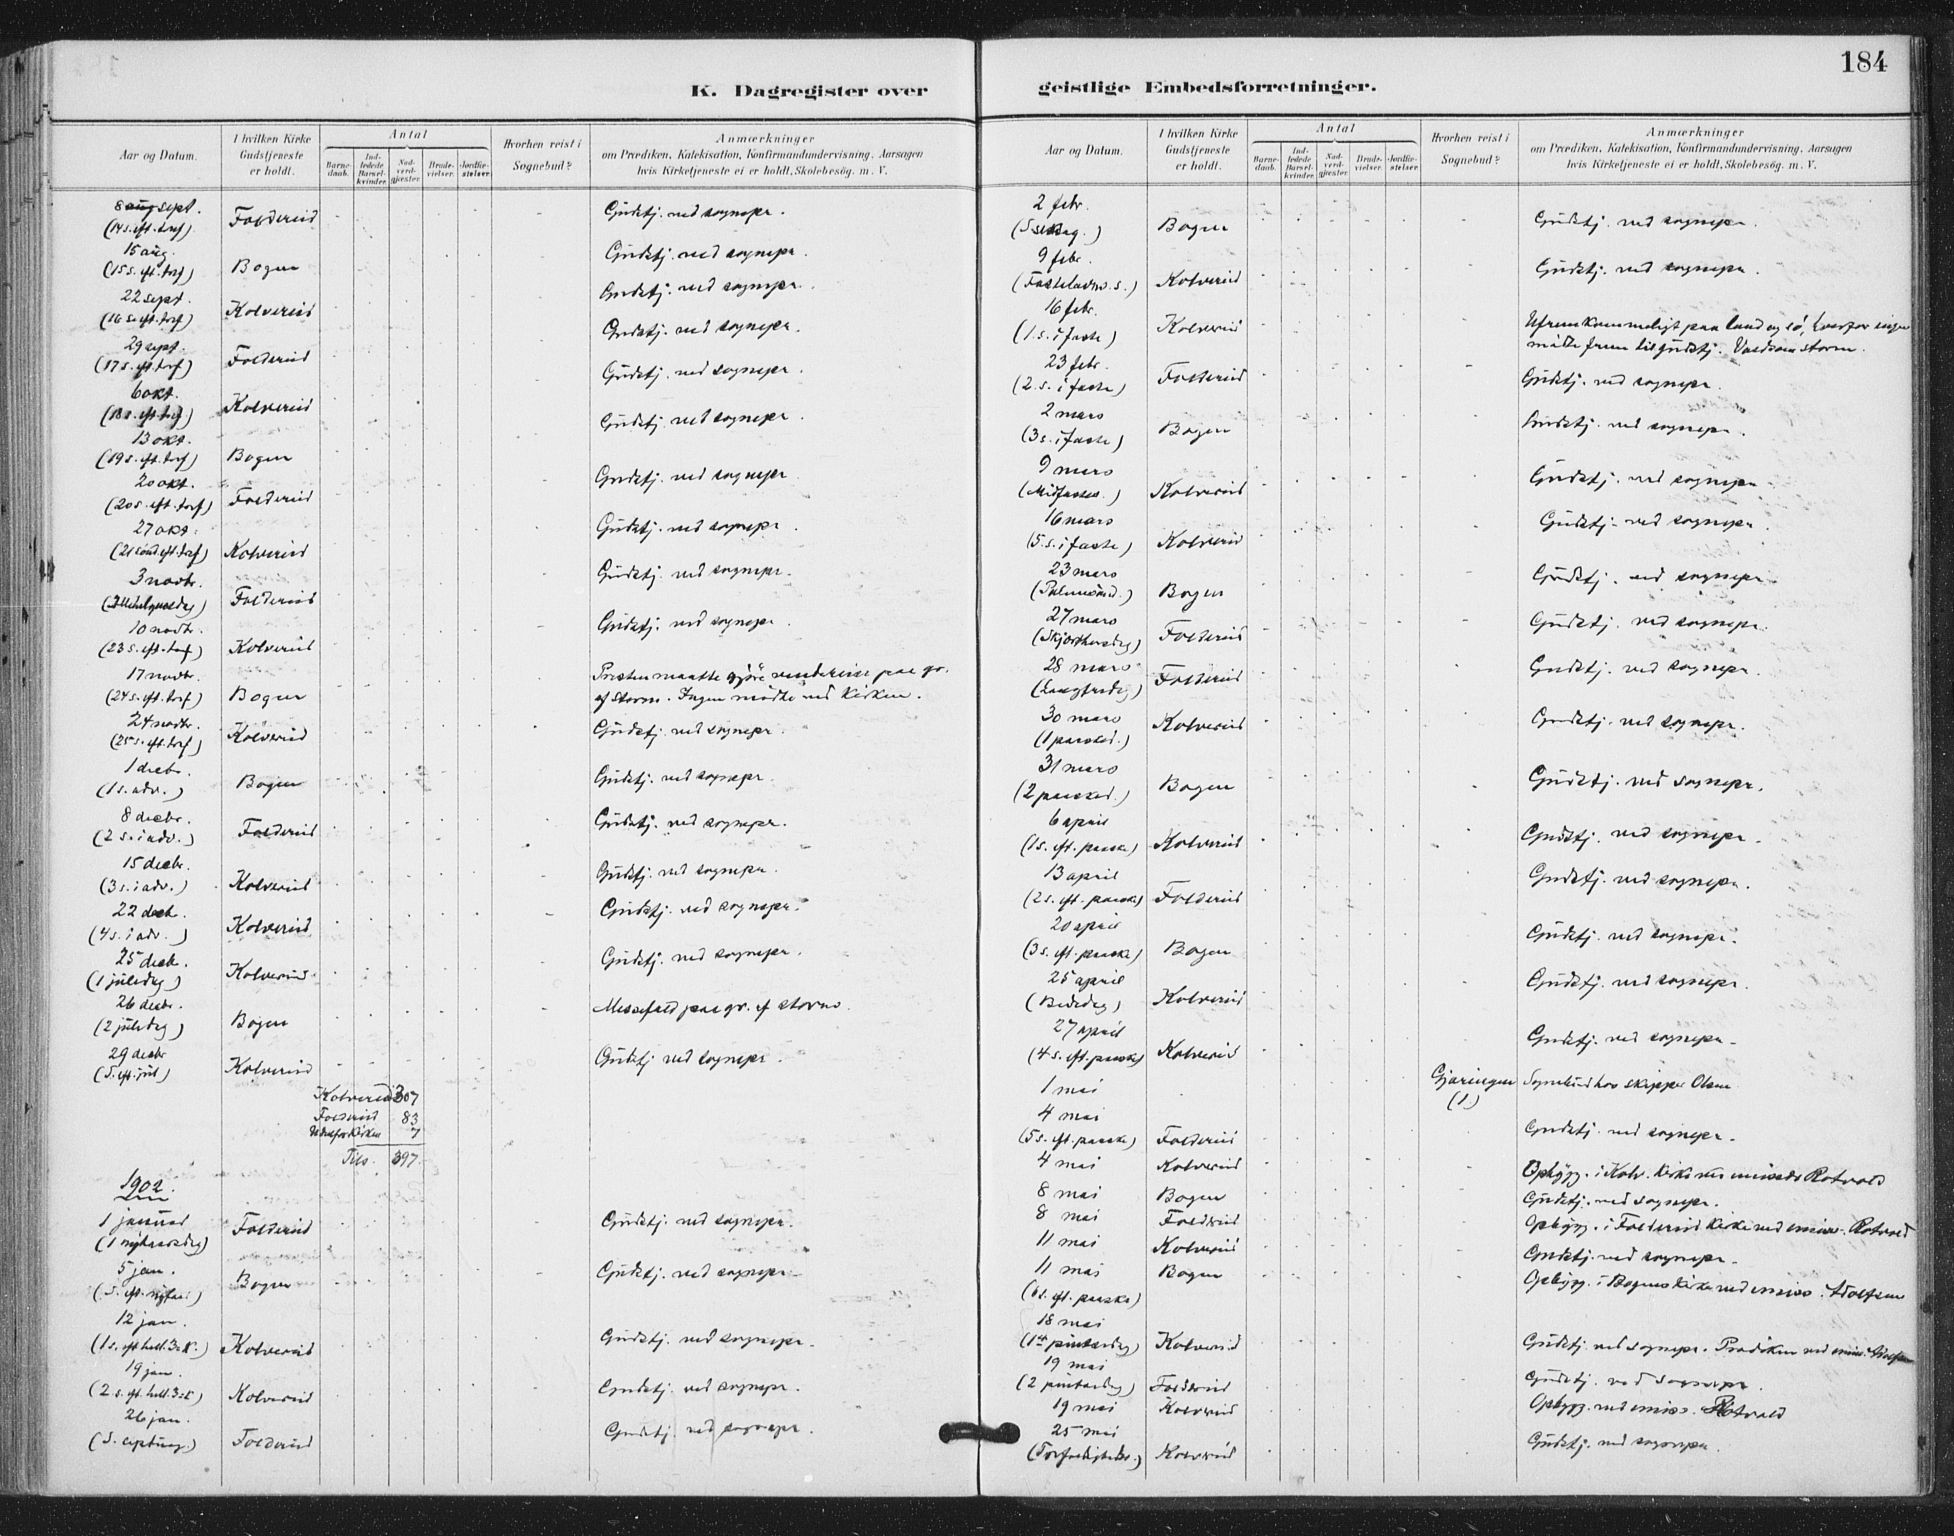 184
K. Dagregister over geistlige Embedsforretninger.
Aar og Datum.
I hvilken Kirke Gudstjeneste er holdt.
Antal
Barne-daab.
Ind-ledede Barsel-kvinder.
Nad-verd-gjester.
Brude-vielser.
Jordfæ-stelser.
Hvorhen reist i Sognebud?
Anmærkninger
om Prædiken, Katekisation, Konfirmandundervisning, Aarsagen
hvis Kirketjeneste ei er holdt, Skolebesøg. m. V.
8 aug sept. (14 s. eft. tref) Foldereid Gudstj. ved sognepr.
15 aug. (15 s. eft. tref) Bogen Gudstj. ved sognepr.
22 sept. (16 s. eft. tref) Kolvereid Gudstj. ved sognepr.
29 sept. (17 s. eft. tref) Foldereid Gudstj. ved sognepr.
6 okt. (18 s. eft. tref) Kolvereid Gudstj. ved sognepr.
13 okt. (19 s. eft. tref) Bogen Gudstj. ved sognepr.
20 okt. (20 s. eft. tref) Foldereid Gudstj. ved sognepr.
27 okt. (21 sönd. eft. tref) Kolvereid Gudstj. ved sognepr.
3 novbr. (Allehelgensdag) Foldereid Gudstj. ved sognepr.
10 novbr. (23 s. eft. tref) Kolvereid Gudstj. ved sognepr.
17 novbr. (24 s. eft. tref) Bogen Presten maatte gjöre vendereise paa gr.
af storm. Ingen mödte ved kirken.
24 novbr. (25 s. eft. tref) Kolvereid Gudstj. ved sognepr.
1 decbr. (1 s. adv.) Bogen Gudstj. ved sognepr.
8 decbr. (2 s. i adv.) Foldereid Gudstj. ved sognepr.
15 decbr. (3 s. i adv.) Kolvereid Gudstj. ved sognepr.
22 decb. (4 s. i adv.) Kolvereid Gudstj. ved sognepr.
25 decb. (1 juledag) Kolvereid Gudstj. ved sognepr.
26 decbr. (2 juledag) Bogen Messefald paa gr. af storm.
29 decbr (S. eft. jul) Kolvereid Gudstj ved sognepr.
Kolvereid 307
Foldereid 83
Udenfor kirken 7
Tils. 397
1902.
1 januar (1 nytaarsdag) Foldereid Gudstj. ved sognepr.
5 jan. (S. eft. nytaar) Bogen Gudstj. ved sognepr.
12 jan. (1 s. eft hell. 3 K.) Kolvereid Gudstj. ved sognepr.
19 jan. (2 s. eft. hell. 3 K) Kolvereid Gudstj. ved sognepr.
26 jan. Foldereid Gudstj. ved sognepr.
Aar og Datum.
I hvilken Kirke Gudstjeneste er holdt.
Antal
Barne-daab.
Ind-ledede Barsel-kvinder.
Nad-verd-gjester.
Brude-vielser.
Jordfæ-stelser.
Hvorhen reist i Sognebud?
Anmærkninger
om Prædiken, Katekisation, Konfirmandundervisning, Aarsagen
hvis Kirketjeneste ei er holdt, Skolebesøg. m. V.
2 febr. Bogen Gudstj. ved sognepr.
9 febr. (Fastelavns s.) Kolvereid Gudstj. ved sognepr.
16 febr. (1. s. i faste) Kolvereid Ufremkommeligt paa land og sö, hvorfor ingen
mödte frem til gudstj. Voldsom storm.
23 febr. (2. s. i faste) Foldereid Gudstj. ved sognepr.
2 mars (3 s. i faste) Bogen Gudstj. ved sognepr.
9 mars (Midfastes.) Kolvereid Gudstj. ved sognepr.
16 mars (5. s. i faste) Kolvereid Gudstj. ved sognepr.
23 mars (Palmesönd.) Bogen Gudstj. ved sognepr.
27 mars (Skjærthorsdag) Foldereid Gudstj. ved sognepr.
28 mars (Langfredag) Foldereid Gudstj. ved sognepr.
30 mars (1 paasked.) Kolvereid Gudstj. ved sognepr.
31 mars (2 paasked.) Bogen Gudstj. ved sognepr.
6 april (1 s. eft. paaske) Kolvereid Gudstj. ved sognepr.
13 april (2 s. eft. paaske) Foldereid Gudstj. ved sognepr.
20 april (3 s. eft. paaske) Bogen Gudstj. ved sognepr.
25 april (Bededag) Kolvereid Gudstj. ved sognepr.
27 april (4 s. eft. paaske) Kolvereid Gudstj. ved sognepr.
1 mai Gjæringen (1) Sognebud hos skipper Olsen
4 mai (5 s. eft. paaske) Foldereid Gudstj. ved sognepr.
4 mai Kolvereid Opbygg. i Kolv. kirke ved emissær Rotvold
8 mai Bogen Gudstj. ved sognepr.
8 mai Foldereid Opbygg. i Foldereid kirke ved emiss. Rotvold
11 mai Kolvereid Gudstj. ved sognepr.
11 mai (6 s. eft. paaske) Bogen Opbygg. i Bogens kirke ved emiss. Adolfsen
18 mai (1ste pintsedag) Kolvereid Gudstj. ved sognepr. Prædiken ved emiss.
19 mai (2 pintsedag) Foldereid Gudstj. ved sognepr.
19 mai Kolvereid Opbygg. ved emiss. Rotvold
25 mai (Trefoldigheds.) Kolvereid Gudstj. ved sognepr.